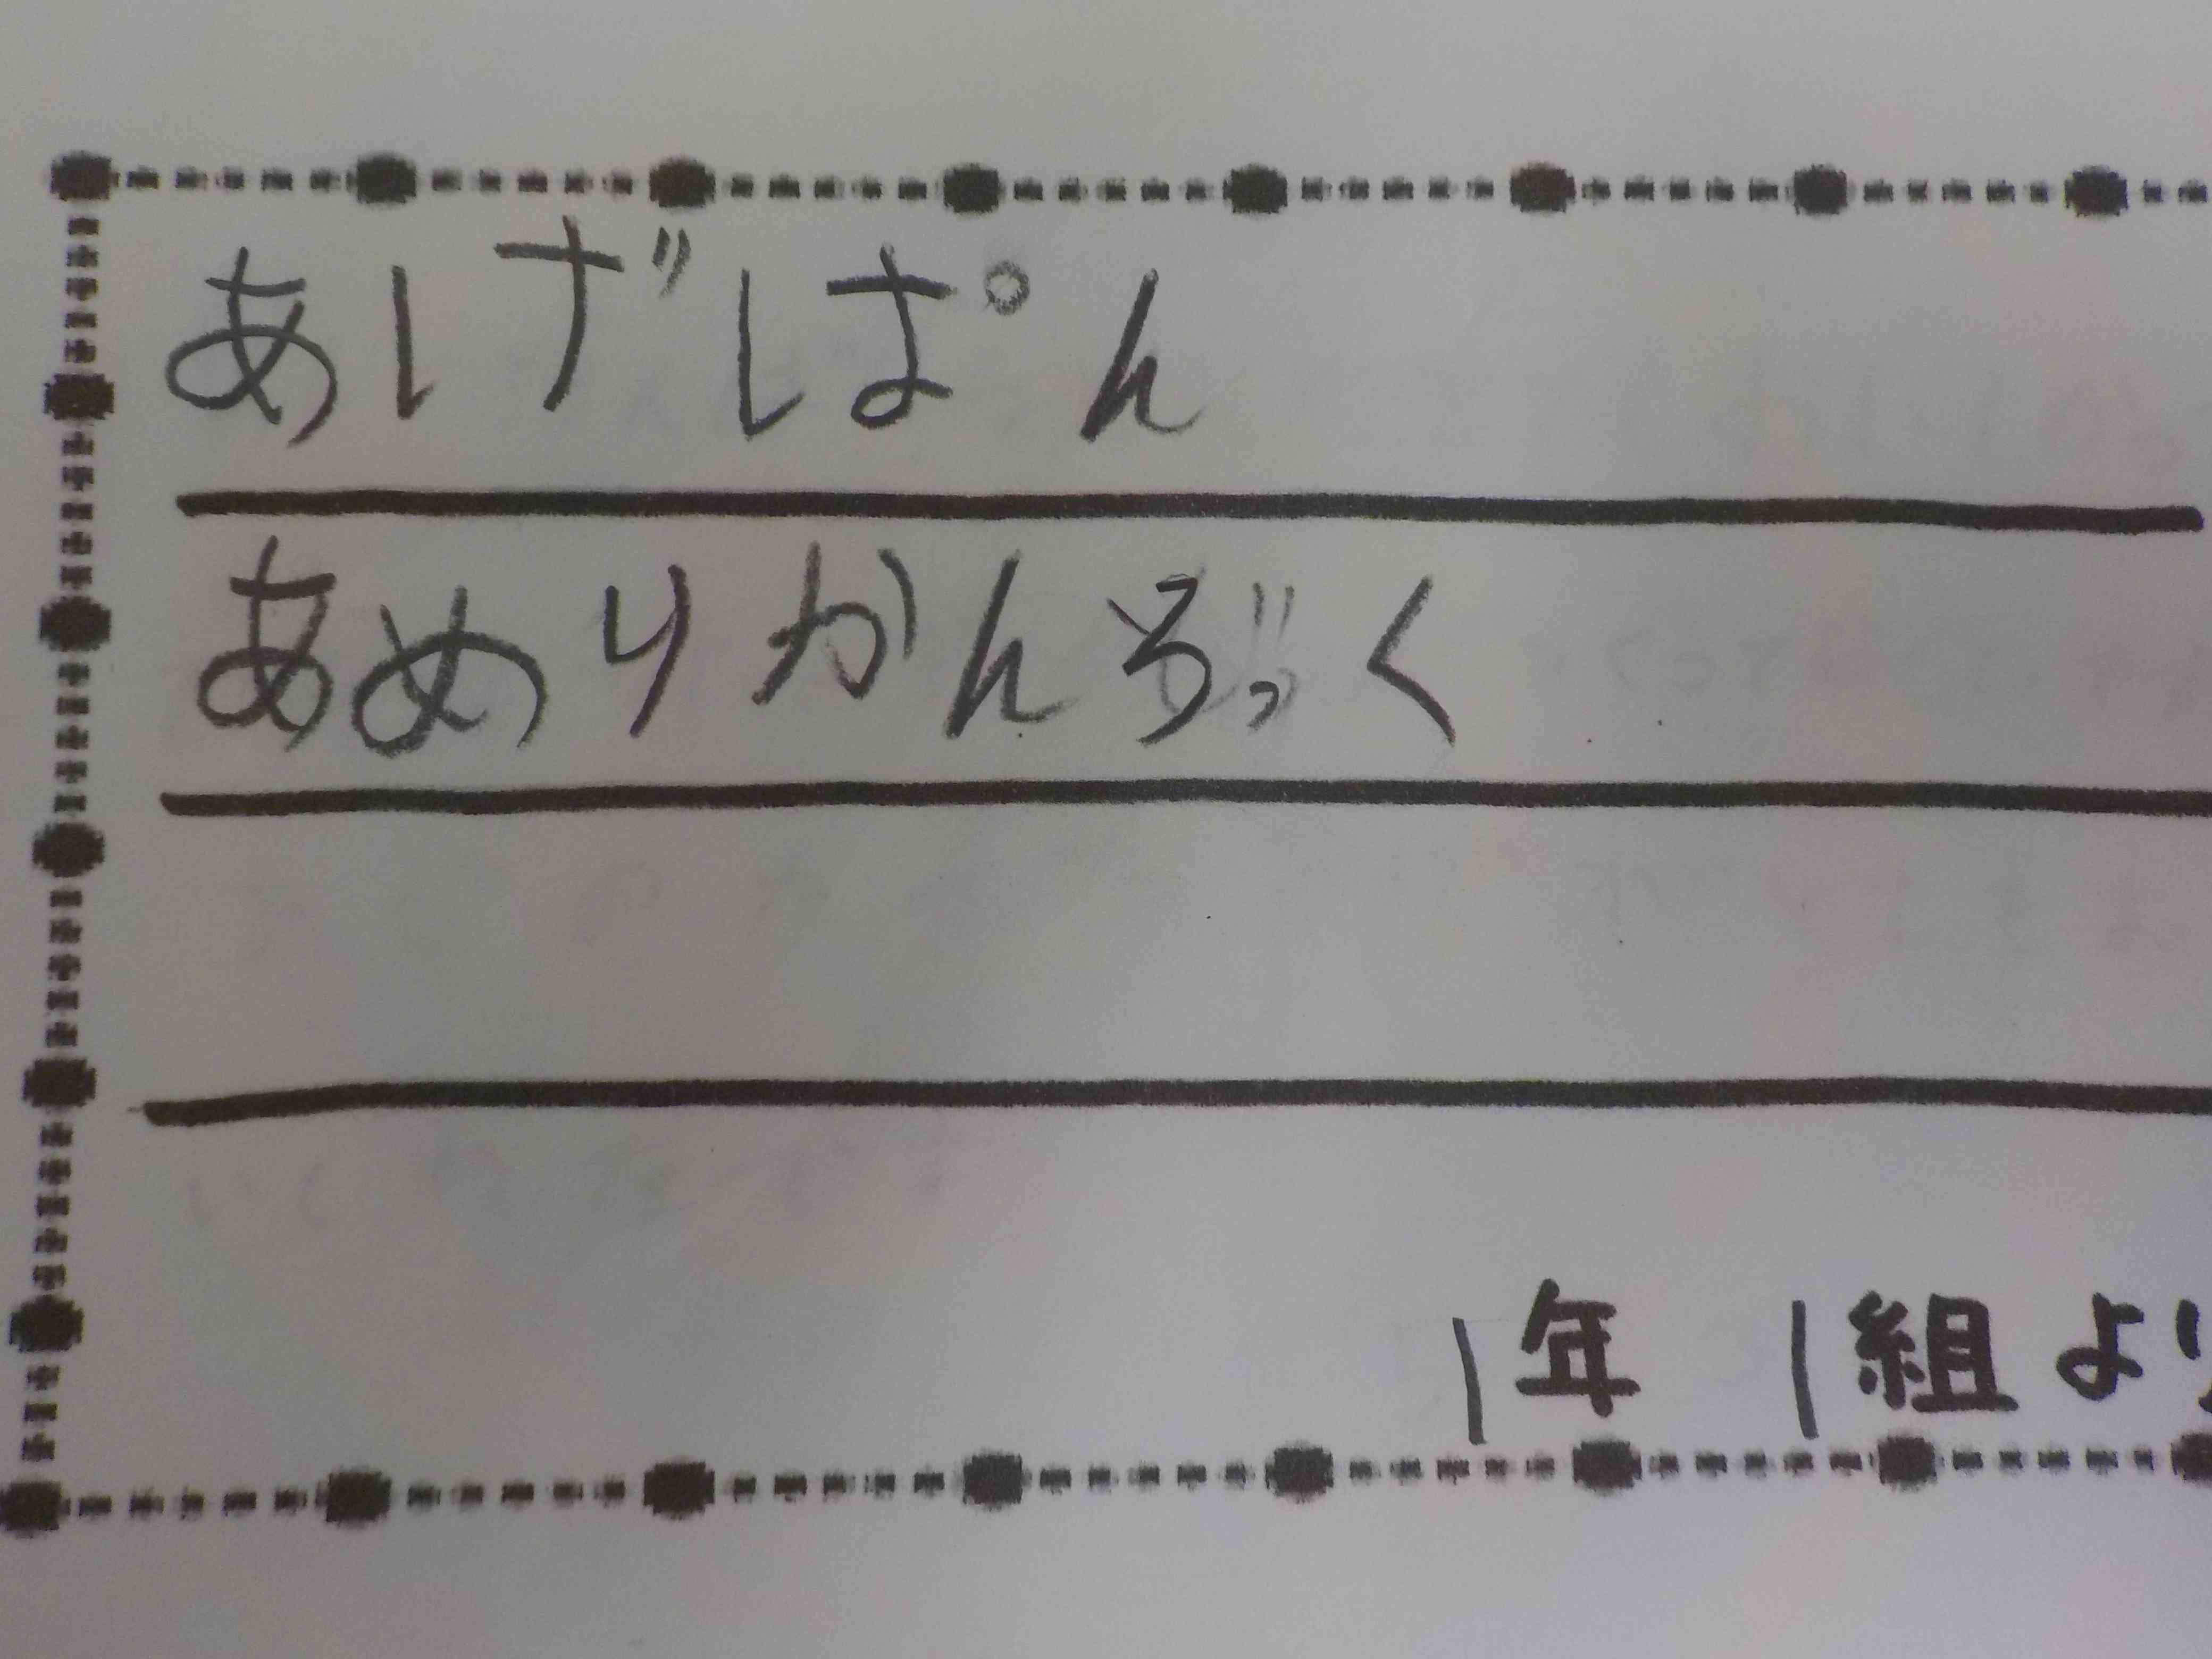 あげぱん
あめりかんどっく
1年 1組より